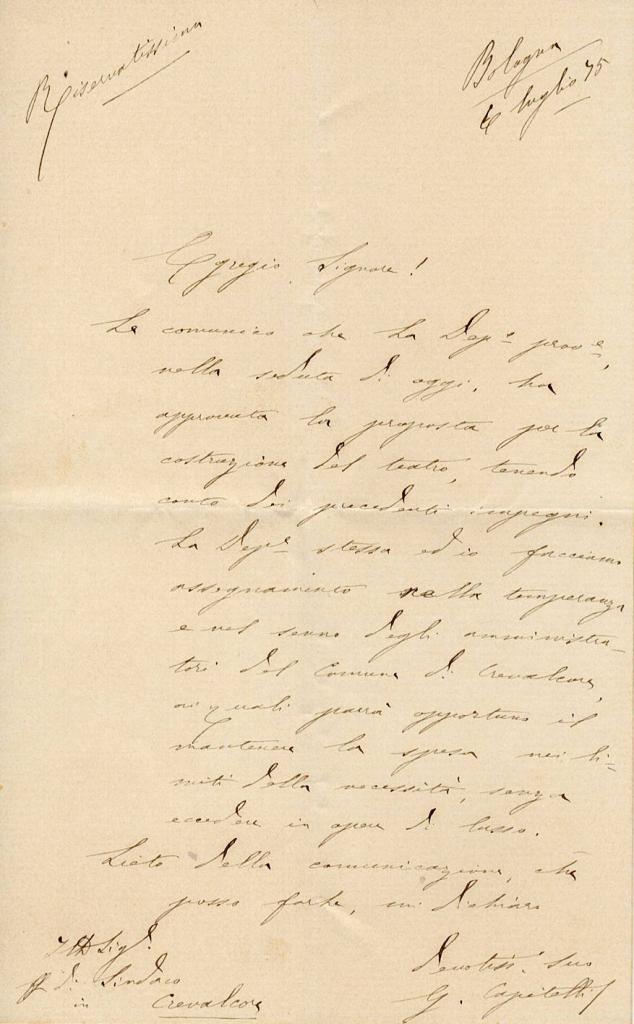 Riservatissima
Bologna
6 luglio 75
Egregio Signore!
Le comunico che la Depe prove,
nella seduta di oggi, ha
approvata la proposta per la
costruzione del teatro, tenendo
conto dei precedenti impegni.
La Depe stessa ed io facciamo
assegnamento nella temperanza
e nel senno degli amministra-
tori del Comune di Crevalcore,
ai quali parrà opportuno il
mantenere la spesa nei li-
miti della necessità, senza
eccedere in opere di lusso.
Lieto della comunicazione, che
posso farle, mi dichiaro
devotiss. suo
G. Capitelli
Ill Sigr
ff di Sindaco
in Crevalcore